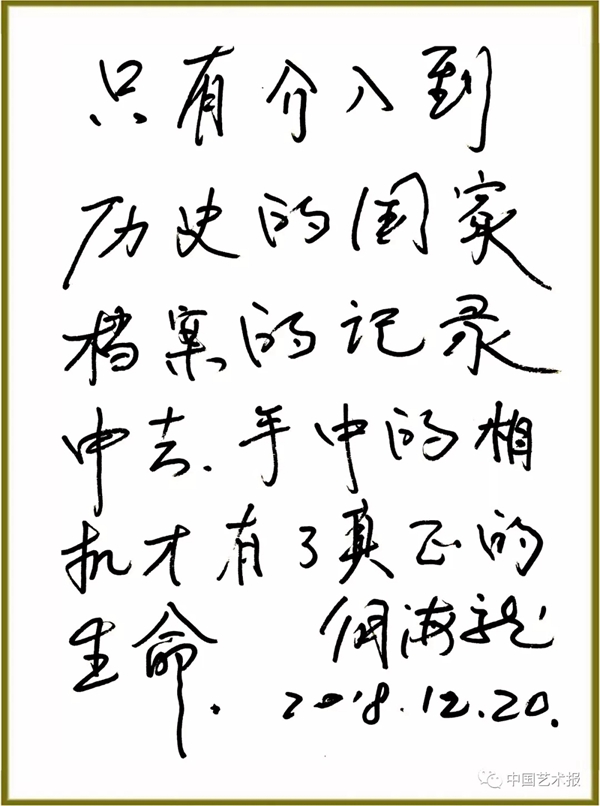 只有介入到
历史的国家
档案的记录
中去、手中的相
机才有了真正的
生命.
2018.12.20.
中国艺术报